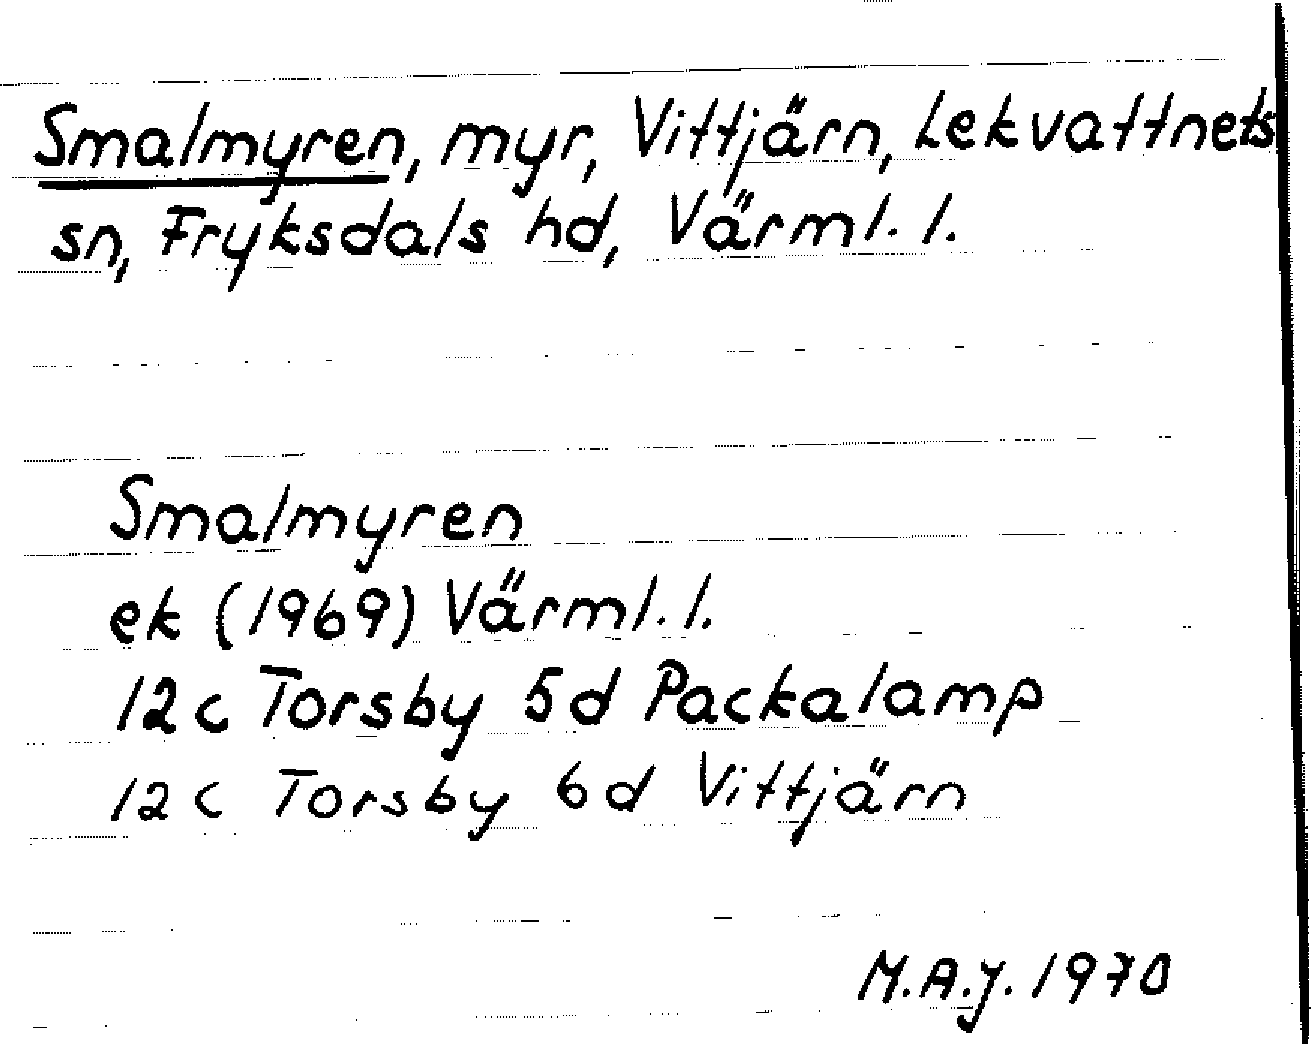 Smalmyren, myr, Vittjärn, Lekvattnets
sn, Fryksdals hd, Värml. l.
Smalmyren
ek (1969) Värml. l.
12c Torsby 5d Packalamp
12c Torsby 6d Vittjärn
M.A.J. 1970